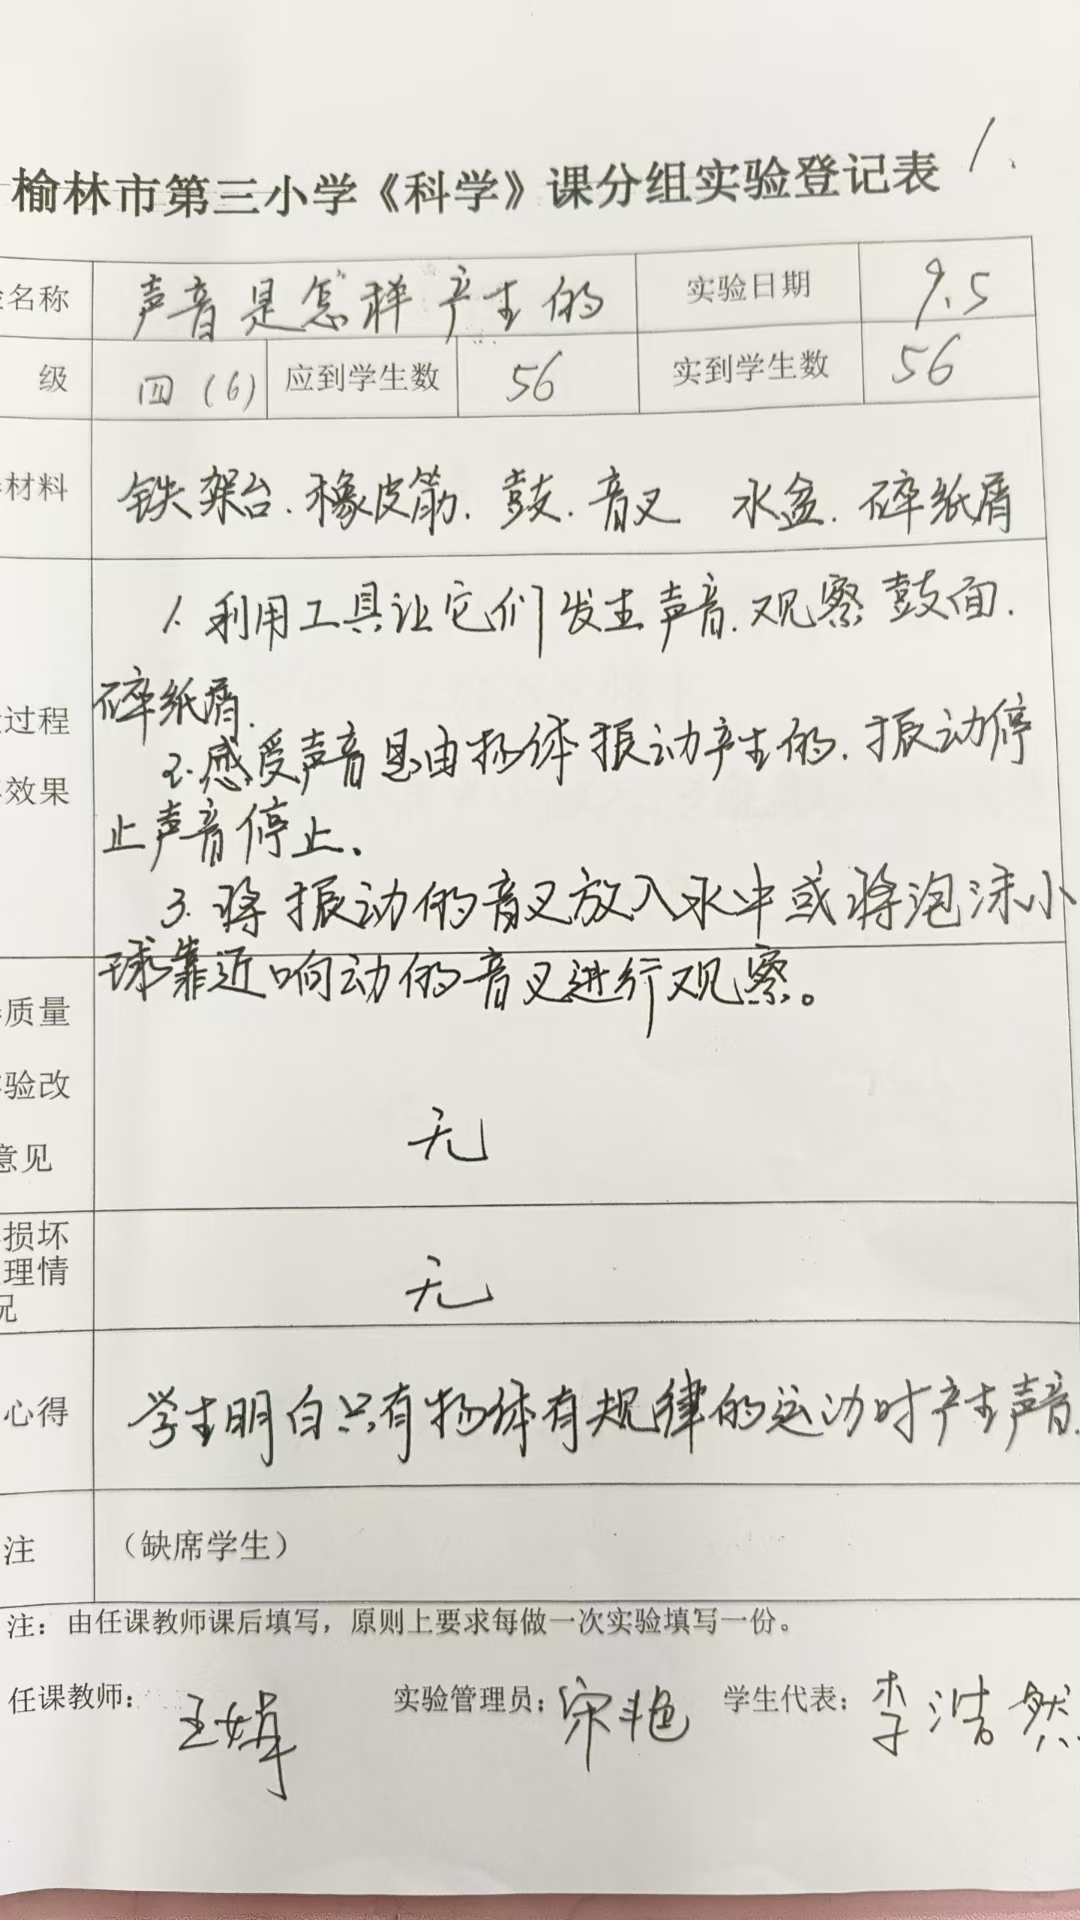 1、
榆林市第三小学《科学》课分组实验登记表
名称 声音是怎样产生的 实验日期 9.5
级 四（6） 应到学生数 56 实到学生数 56
材料 铁架台、橡皮筋、鼓、音叉 水盆、碎纸屑
1、利用工具让它们发生声音、观察鼓面、
碎纸屑、
过程
2、感受声音是由物体振动产生的、振动停
效果
止声音停止、
3、将振动的音叉放入水中或将泡沫小
球靠近响动的音叉进行观察。
质量
验改
意见 无
损坏
理情
况 无
心得 学生明白只有物体有规律的运动时产生声音、
注 （缺席学生）
注：由任课教师课后填写，原则上要求每做一次实验填写一份。
任课教师： 王婥 实验管理员：宋艳 学生代表：李浩然